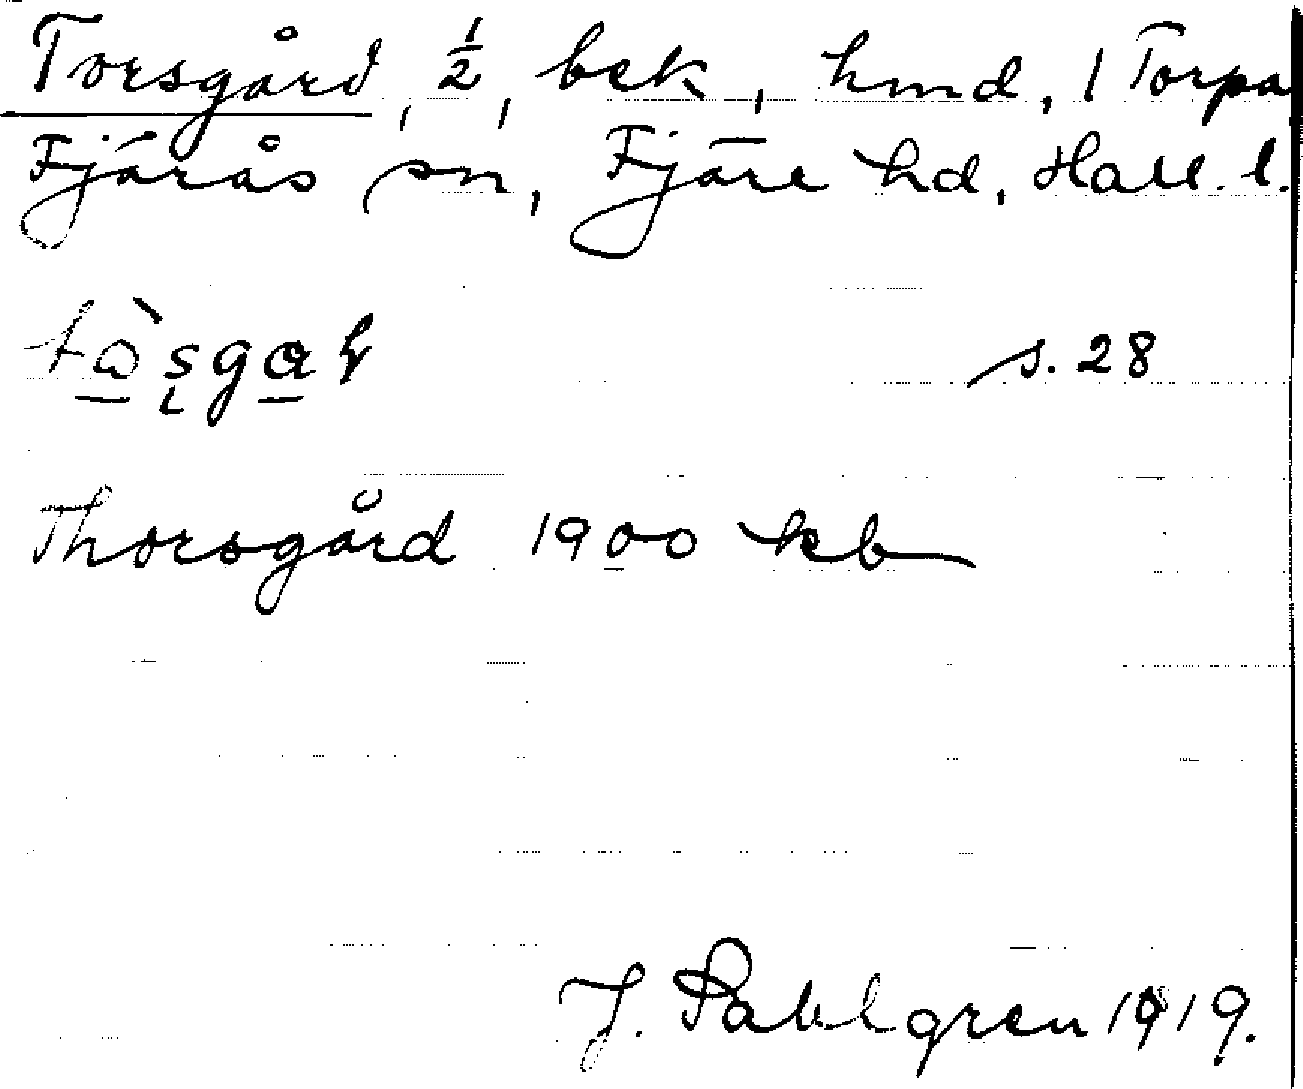 Torsgård, ½, bek, hmd, 1 Torpa
Fjärås sn, Fjäre hd, Hall. l.
s. 28
Thorsgård 1900 kb
J. Sahlgren 1919.